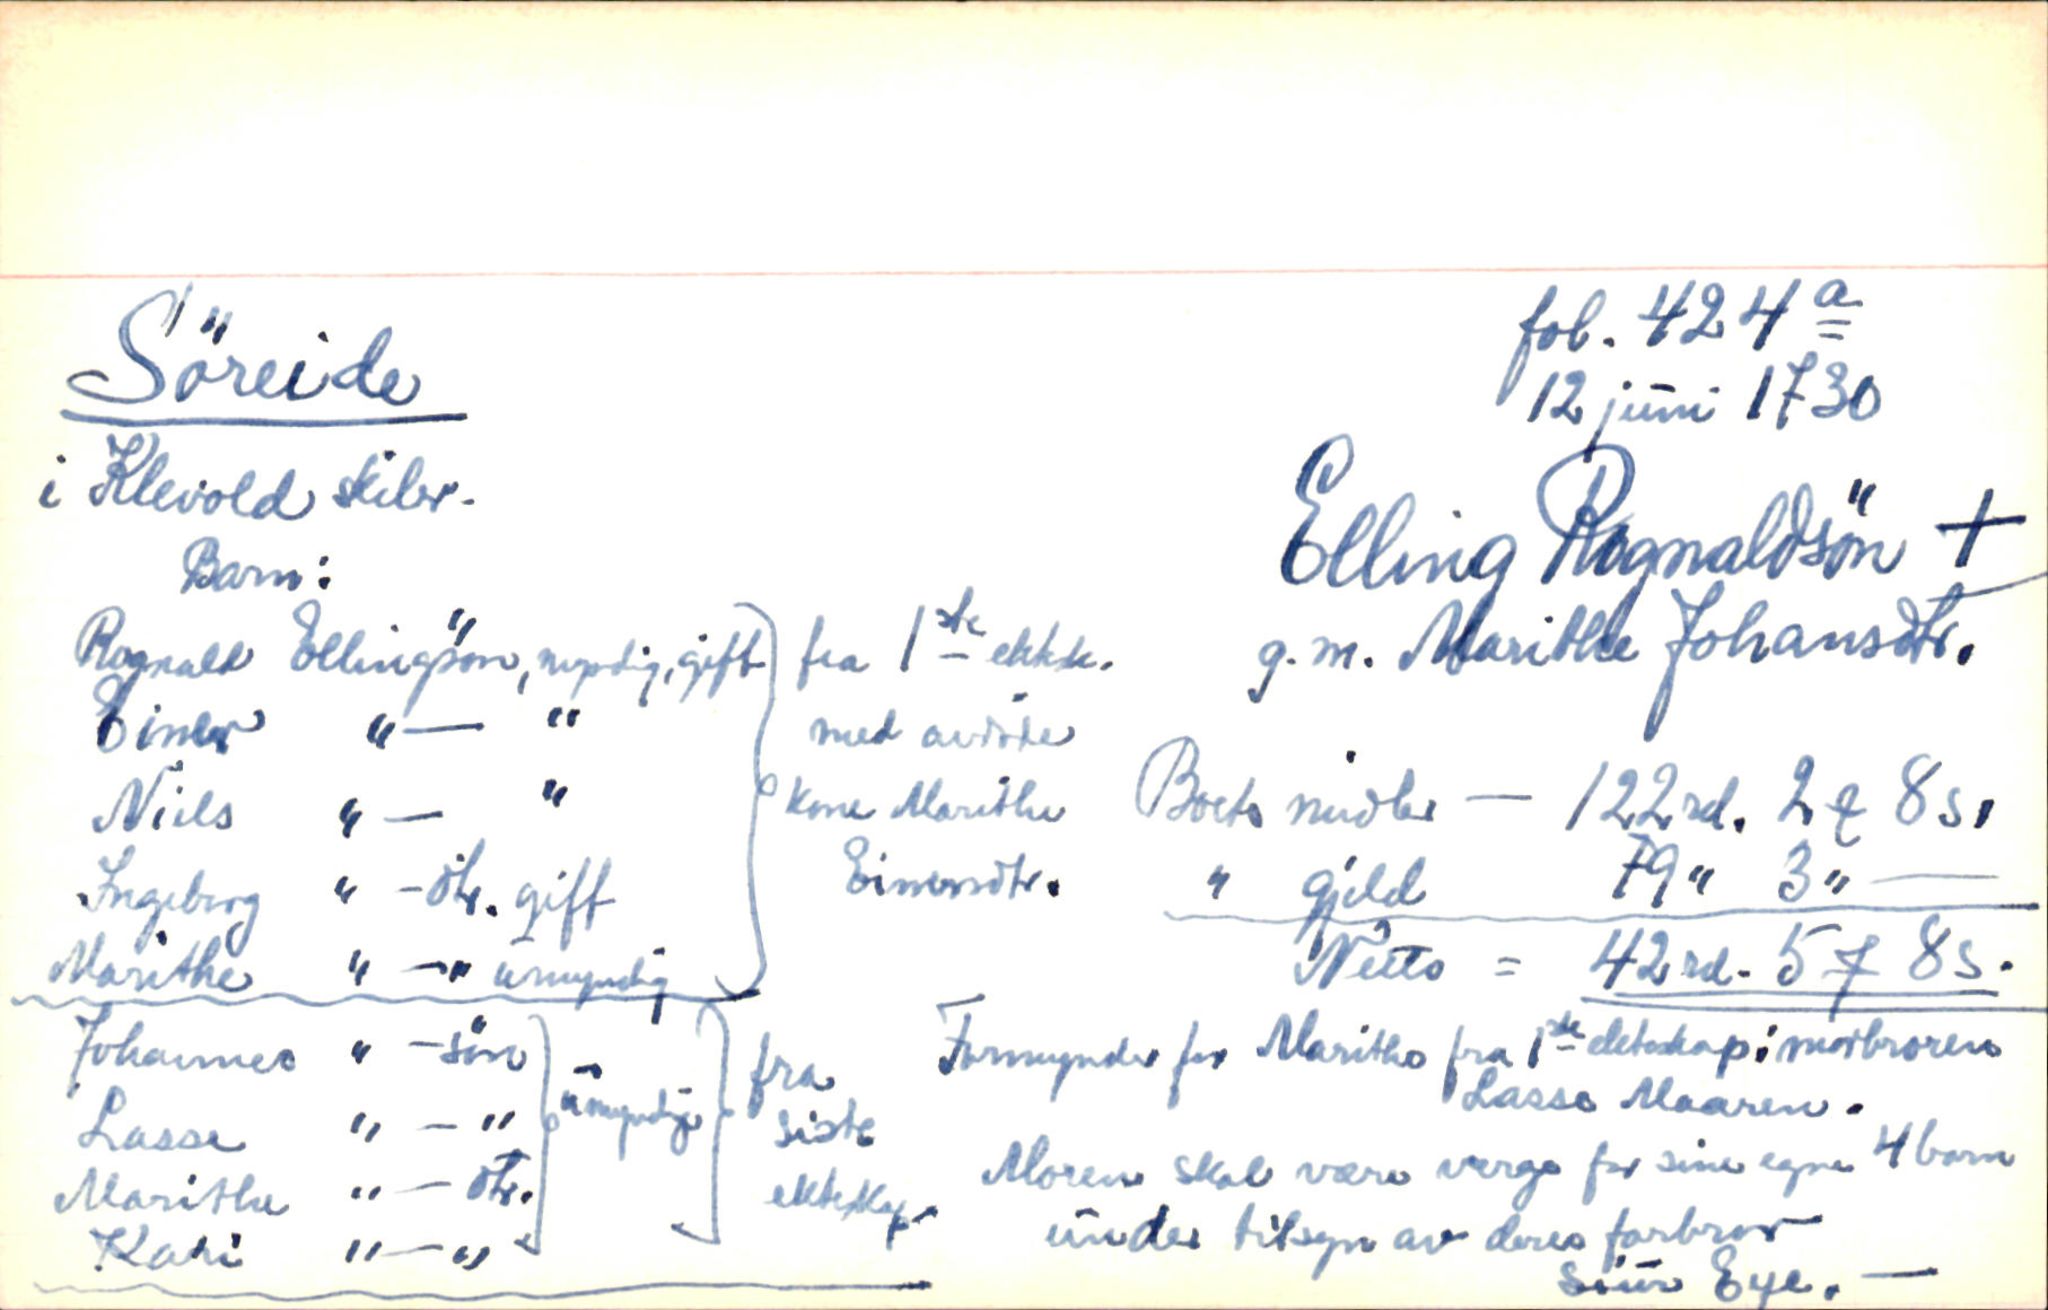 fol. 424 a
12 juni 1730
Söreide
i Klevold skibr.
Elling Rognaldsön +
g. m. Marithe Johansdtr.
Barn:
Rognald Ellingsön, myndig, gift
Einer " — "
Niels " — "
Ingeborg " - dtr. gift
Marithe " — " umyndig
fra 1ste ektsk.
med avdöde
kone Marithe
Einersdtr.
Johannes " - sön
Lasse " — "
Marithe " — dtr.
Kari " — "
umyndige
fra
siste
ekteskap
Boets midler — 122 rd. 2 ℳ 8 s.
" gjeld 79 " 3 " —
Netto = 42 rd. 5 ℳ 8 s.
Formynder for Marithe fra 1ste ekteskap: morbroren
Lasse Maaren.
Moren skal være verge for sine egne 4 barn
under tilsyn av deres farbror
Siur Eye. —